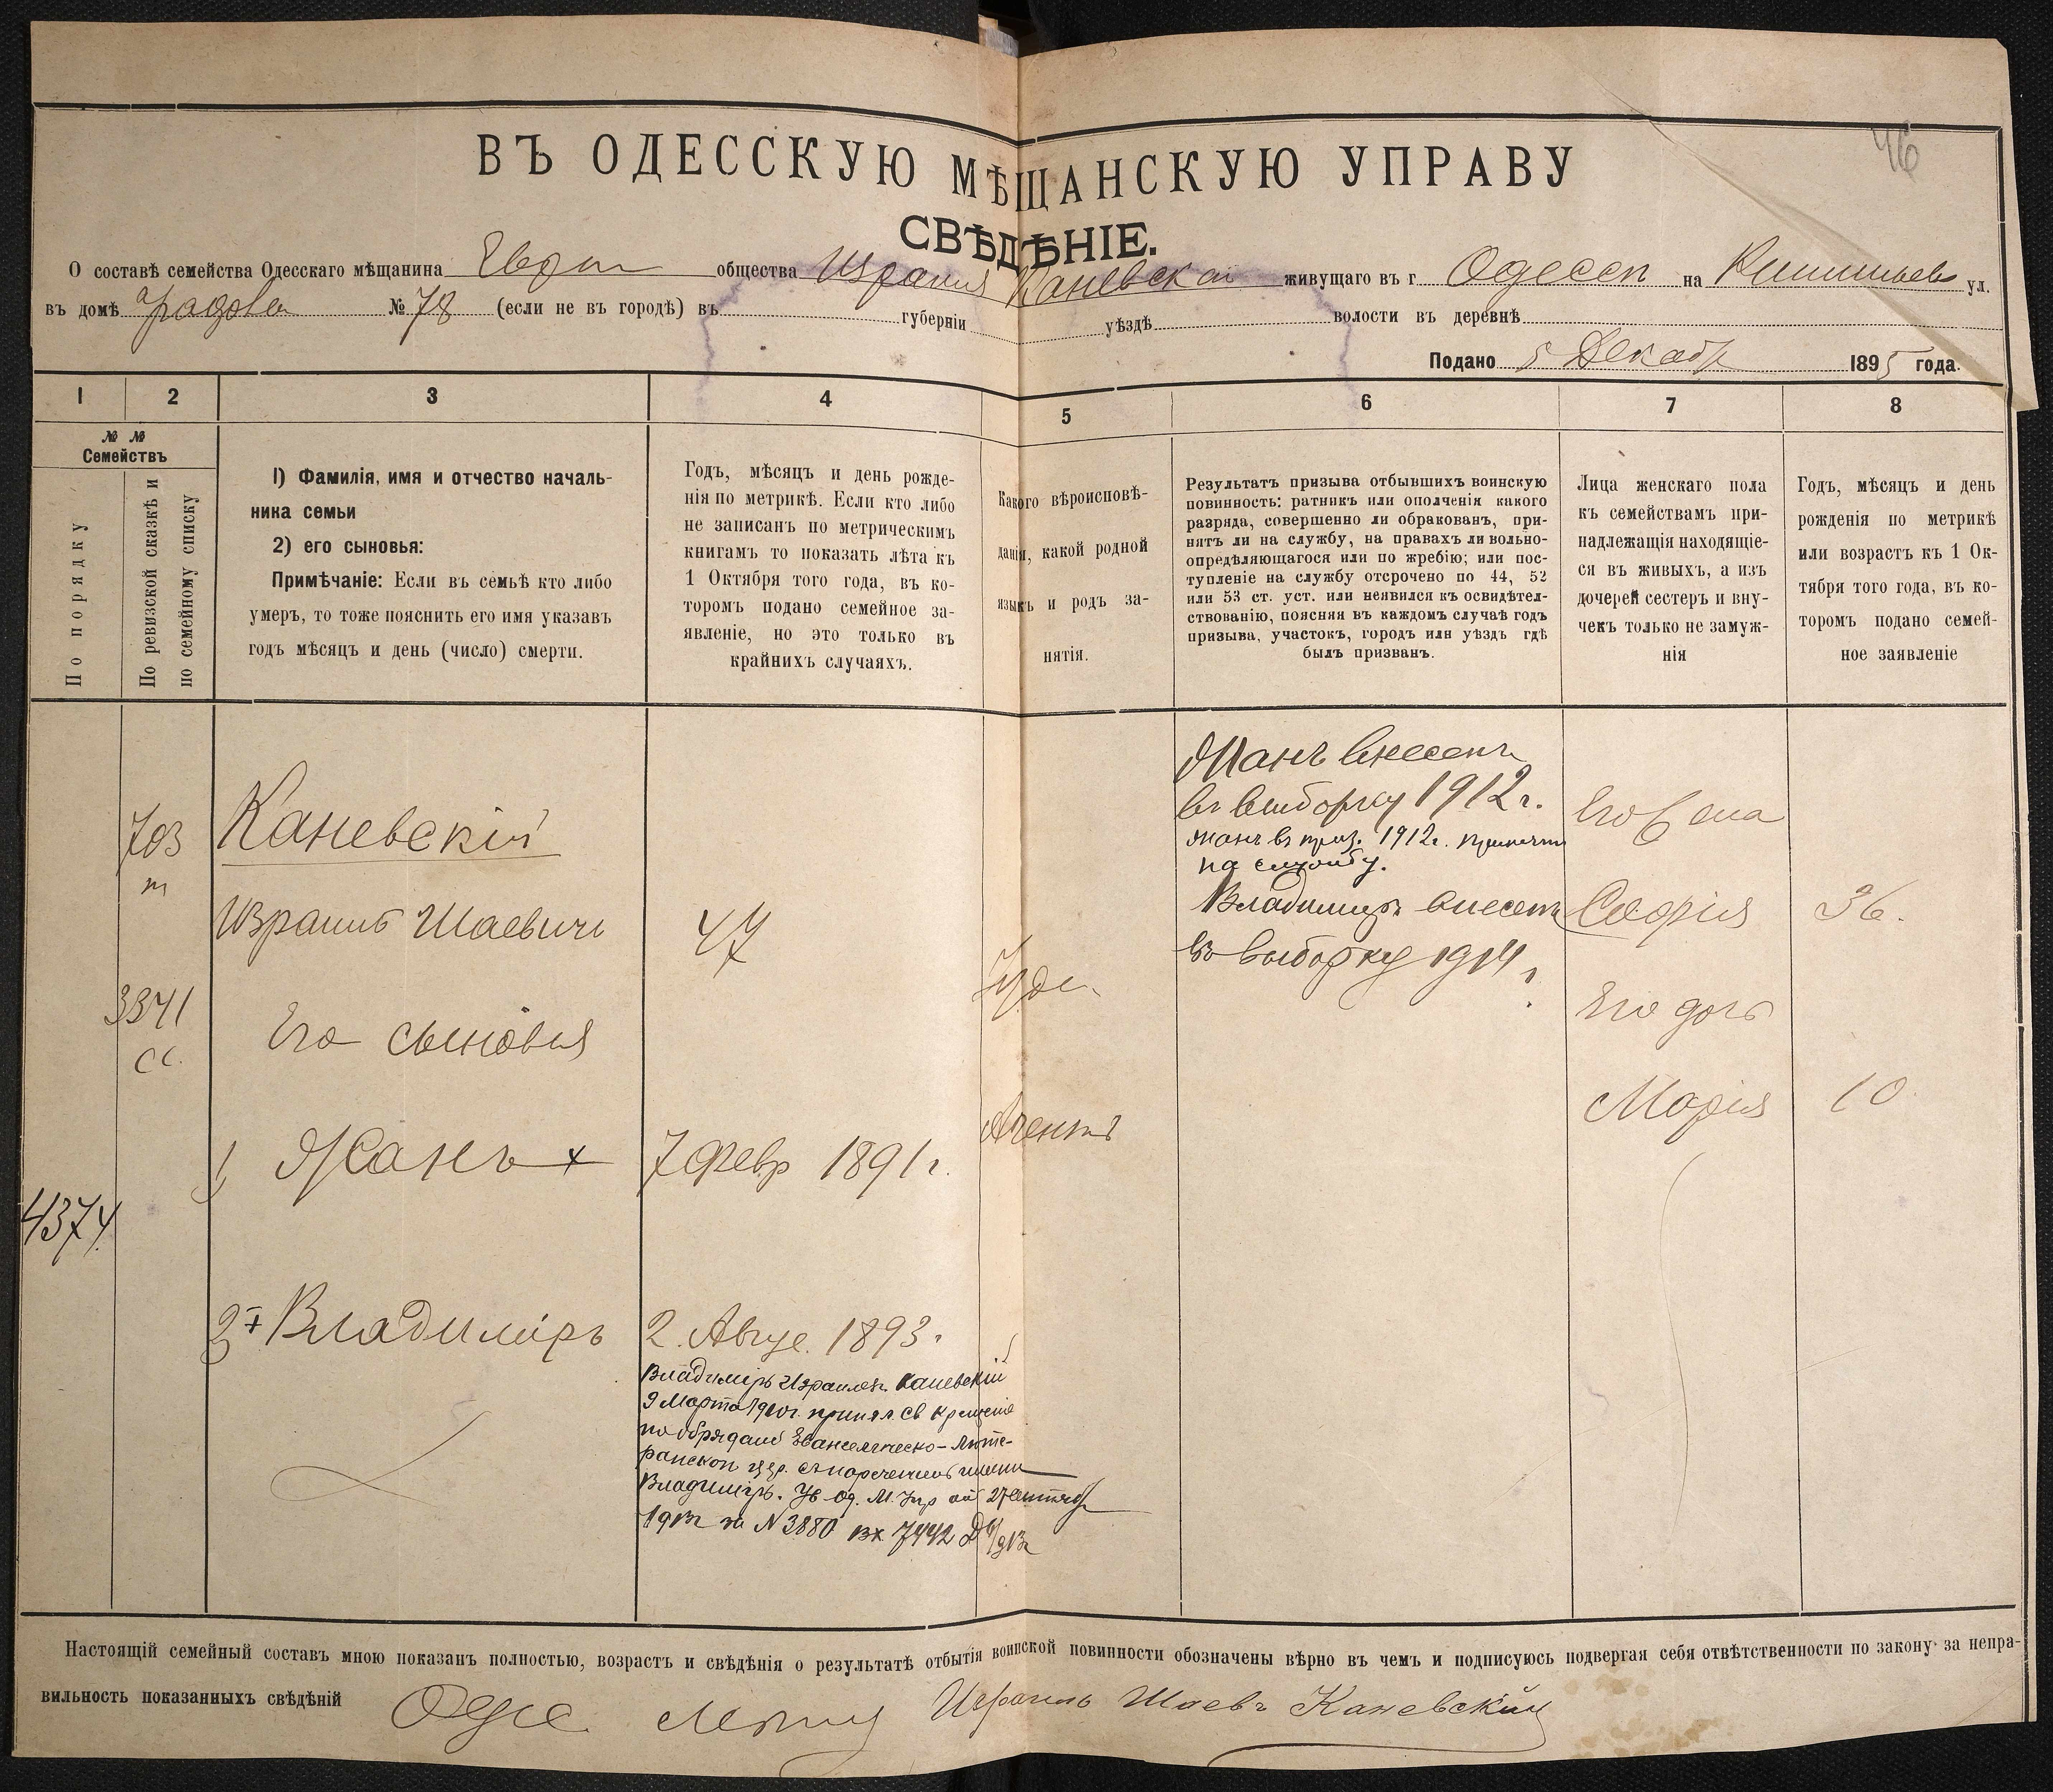 46
ВЪ ОДЕССКУЮ МѢЩАНСКУЮ УПРАВУ
СВѢДѢНІЕ.
О составѣ семейства Одесскаго мѣщанина Евр общества Израиля Каневскаго живущаго въ г. Одессѣ на ул.
въ домѣ Градова № 78 (если не въ городѣ) въ губерніи уѣздѣ волости въ деревнѣ
Подано 5 Декабр 1895 года.
1 2 3 4 5 6 7 8
№ №
Семействъ
По порядку
По ревизской сказкѣ и
по семейному списку
1) Фамилія, имя и отчество началь-
ника семьи
2) его сыновья:
Примѣчаніе: Если въ семьѣ кто либо
умеръ, то тоже пояснить его имя указавъ
годъ мѣсяцъ и день (число) смерти.
Годъ, мѣсяцъ и день рожде-
нія по метрикѣ. Если кто либо
не записанъ по метрическимъ
книгамъ то показать лѣта къ
1 Октября того года, въ ко-
торомъ подано семейное за-
явленіе, но это только въ
крайнихъ случаяхъ.
Какого вѣроисповѣ-
данія, какой родной
языкъ и родъ за-
нятія.
Результатъ призыва отбывшихъ воинскую
повинность: ратникъ или ополченія какого
разряда, совершенно ли обракованъ, при-
нятъ ли на службу, на правахъ ли вольно-
опредѣляющагося или по жребію; или пос-
тупленіе на службу отсрочено по 44, 52
или 53 ст. уст. или неявился къ освидѣтел-
ствованію, поясняя въ каждомъ случаѣ годъ
призыва, участокъ, городъ или уѣздъ гдѣ
былъ призванъ.
Лица женскаго пола
къ семействамъ при-
надлежащія находящіе-
ся въ живыхъ, а изъ
дочерей сестеръ и вну-
чекъ только не замуж-
нія
Годъ, мѣсяцъ и день
рожденія по метрикѣ
или возрастъ къ 1 Ок-
тября того года, въ ко-
торомъ подано семей-
ное заявленіе
703
т
Каневскій
Израиль Шаевичъ
47
3341
сс.
Его сыновья
Іуде.
1 Жанъ +
7 Февр 1891 г.
Агентъ
4374
2 + Владиміръ
2. Авгус. 1893 г
Владиміръ Израилев. Каневскій
9 Марта 1910 г. принял св крещение
по обрядамъ Евангелическо-Люте-
ранской цер. съ наречениемъ имени
Владиміръ. Ув Од. М. Упр от 27 Сентября
1913 г за N 3880 вх 7442 Д /913 г
Жанъ внесенъ
въ выборку 1912 г.
Жанъ въ приз. 1912 г. принятъ
на службу.
Владимиръ внесенъ
въ выборку 1914 г.
Его жена
Софія
36.
Его дочь
Марія
10
Настоящій семейный составъ мною показанъ полностью, возрастъ и свѣдѣнія о результатѣ отбытія воинской повинности обозначены вѣрно въ чемъ и подписуюсь подвергая себя отвѣтственности по закону за непра-
вильность показанныхъ свѣдѣній Одес Израиль Шаевъ Каневскій